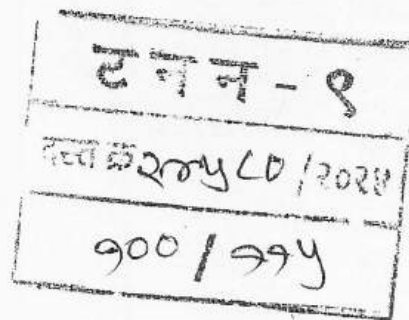 टनन - १
दस्त क्र २७५८०/२०२४
१००/११५